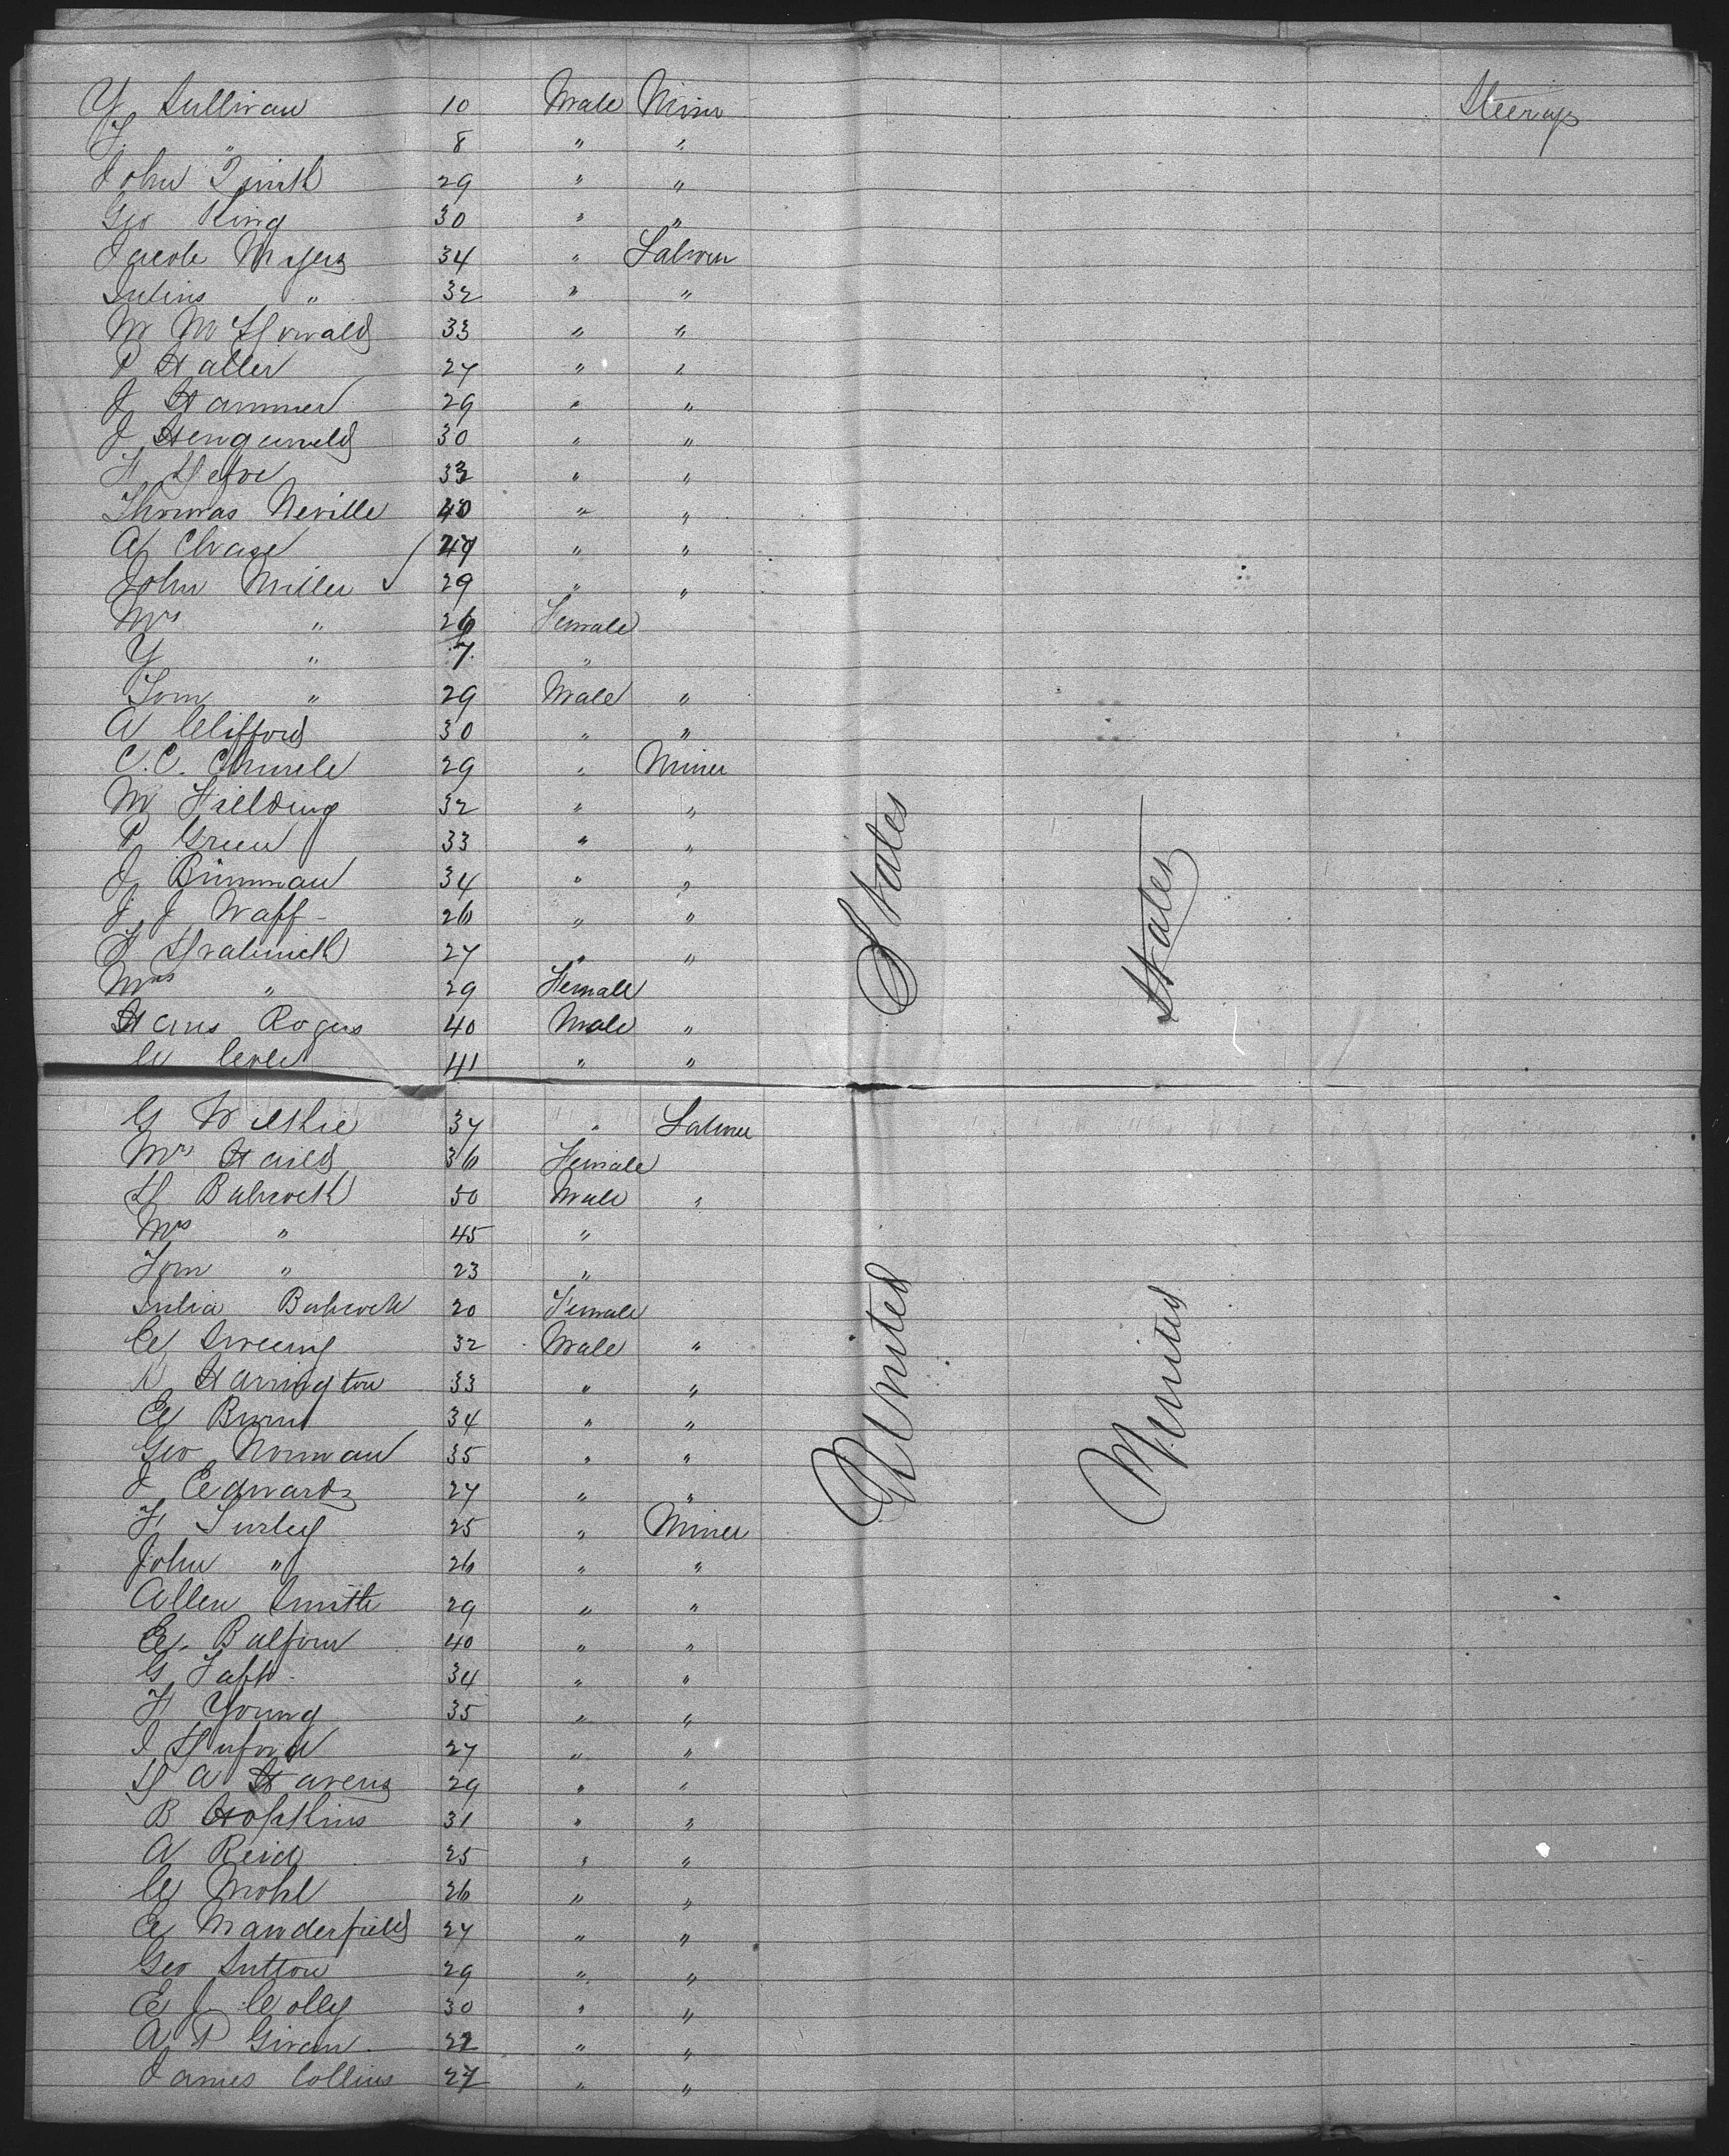 Y Sullivan 10 Male Miner Steerage
J " 8 " "
John Smith 29 " "
Geo King 30 " "
Jacob Myers 34 " Labover
Julius " 32 " "
W McDonald 33 " "
P Haller 27 " "
J Hammer 29 " "
J Hengeweld 30 " "
H 33 " "
Thomas Neville 40 " "
A Chase 27 " "
John Miller 29 " "
Mrs " 26 Female
Y " 7 "
Tom " 29 Male "
A Clifford 30 " "
C.C. 29 " Miner
M Fielding 32 " "
P Green 33 " "
J Brinman 34 " "
J. J Waff 26 " "
F 27 " "
Mrs " 29 Female
Hans Rogers 40 Male "
41 " "
G Wilkie 37 " Labover
Mrs 36 Female
D Babcock 50 Male "
Mrs " 45 "
Tom " 23 "
Julia Babcock 20 Female
C Sweeny 32 Male "
D Harrington 33 " "
E Burns 34 " "
Geo Norman 35 " "
J Edwards 27 " "
F Turley 25 " Miner
John " 26 " "
Allen Smith 29 " "
E. Balfour 40 " "
G Taft 34 " "
H Young 35 " "
J 27 " "
D A Havens 29 " "
B Hopkins 31 " "
A Reid 25 " "
C Mohl 26 " "
E Manderfield 27 " "
Geo Sutton 29 " "
E J Colly 30 " "
A P Givan 22 " "
James Collins 27 " "
United States
United States